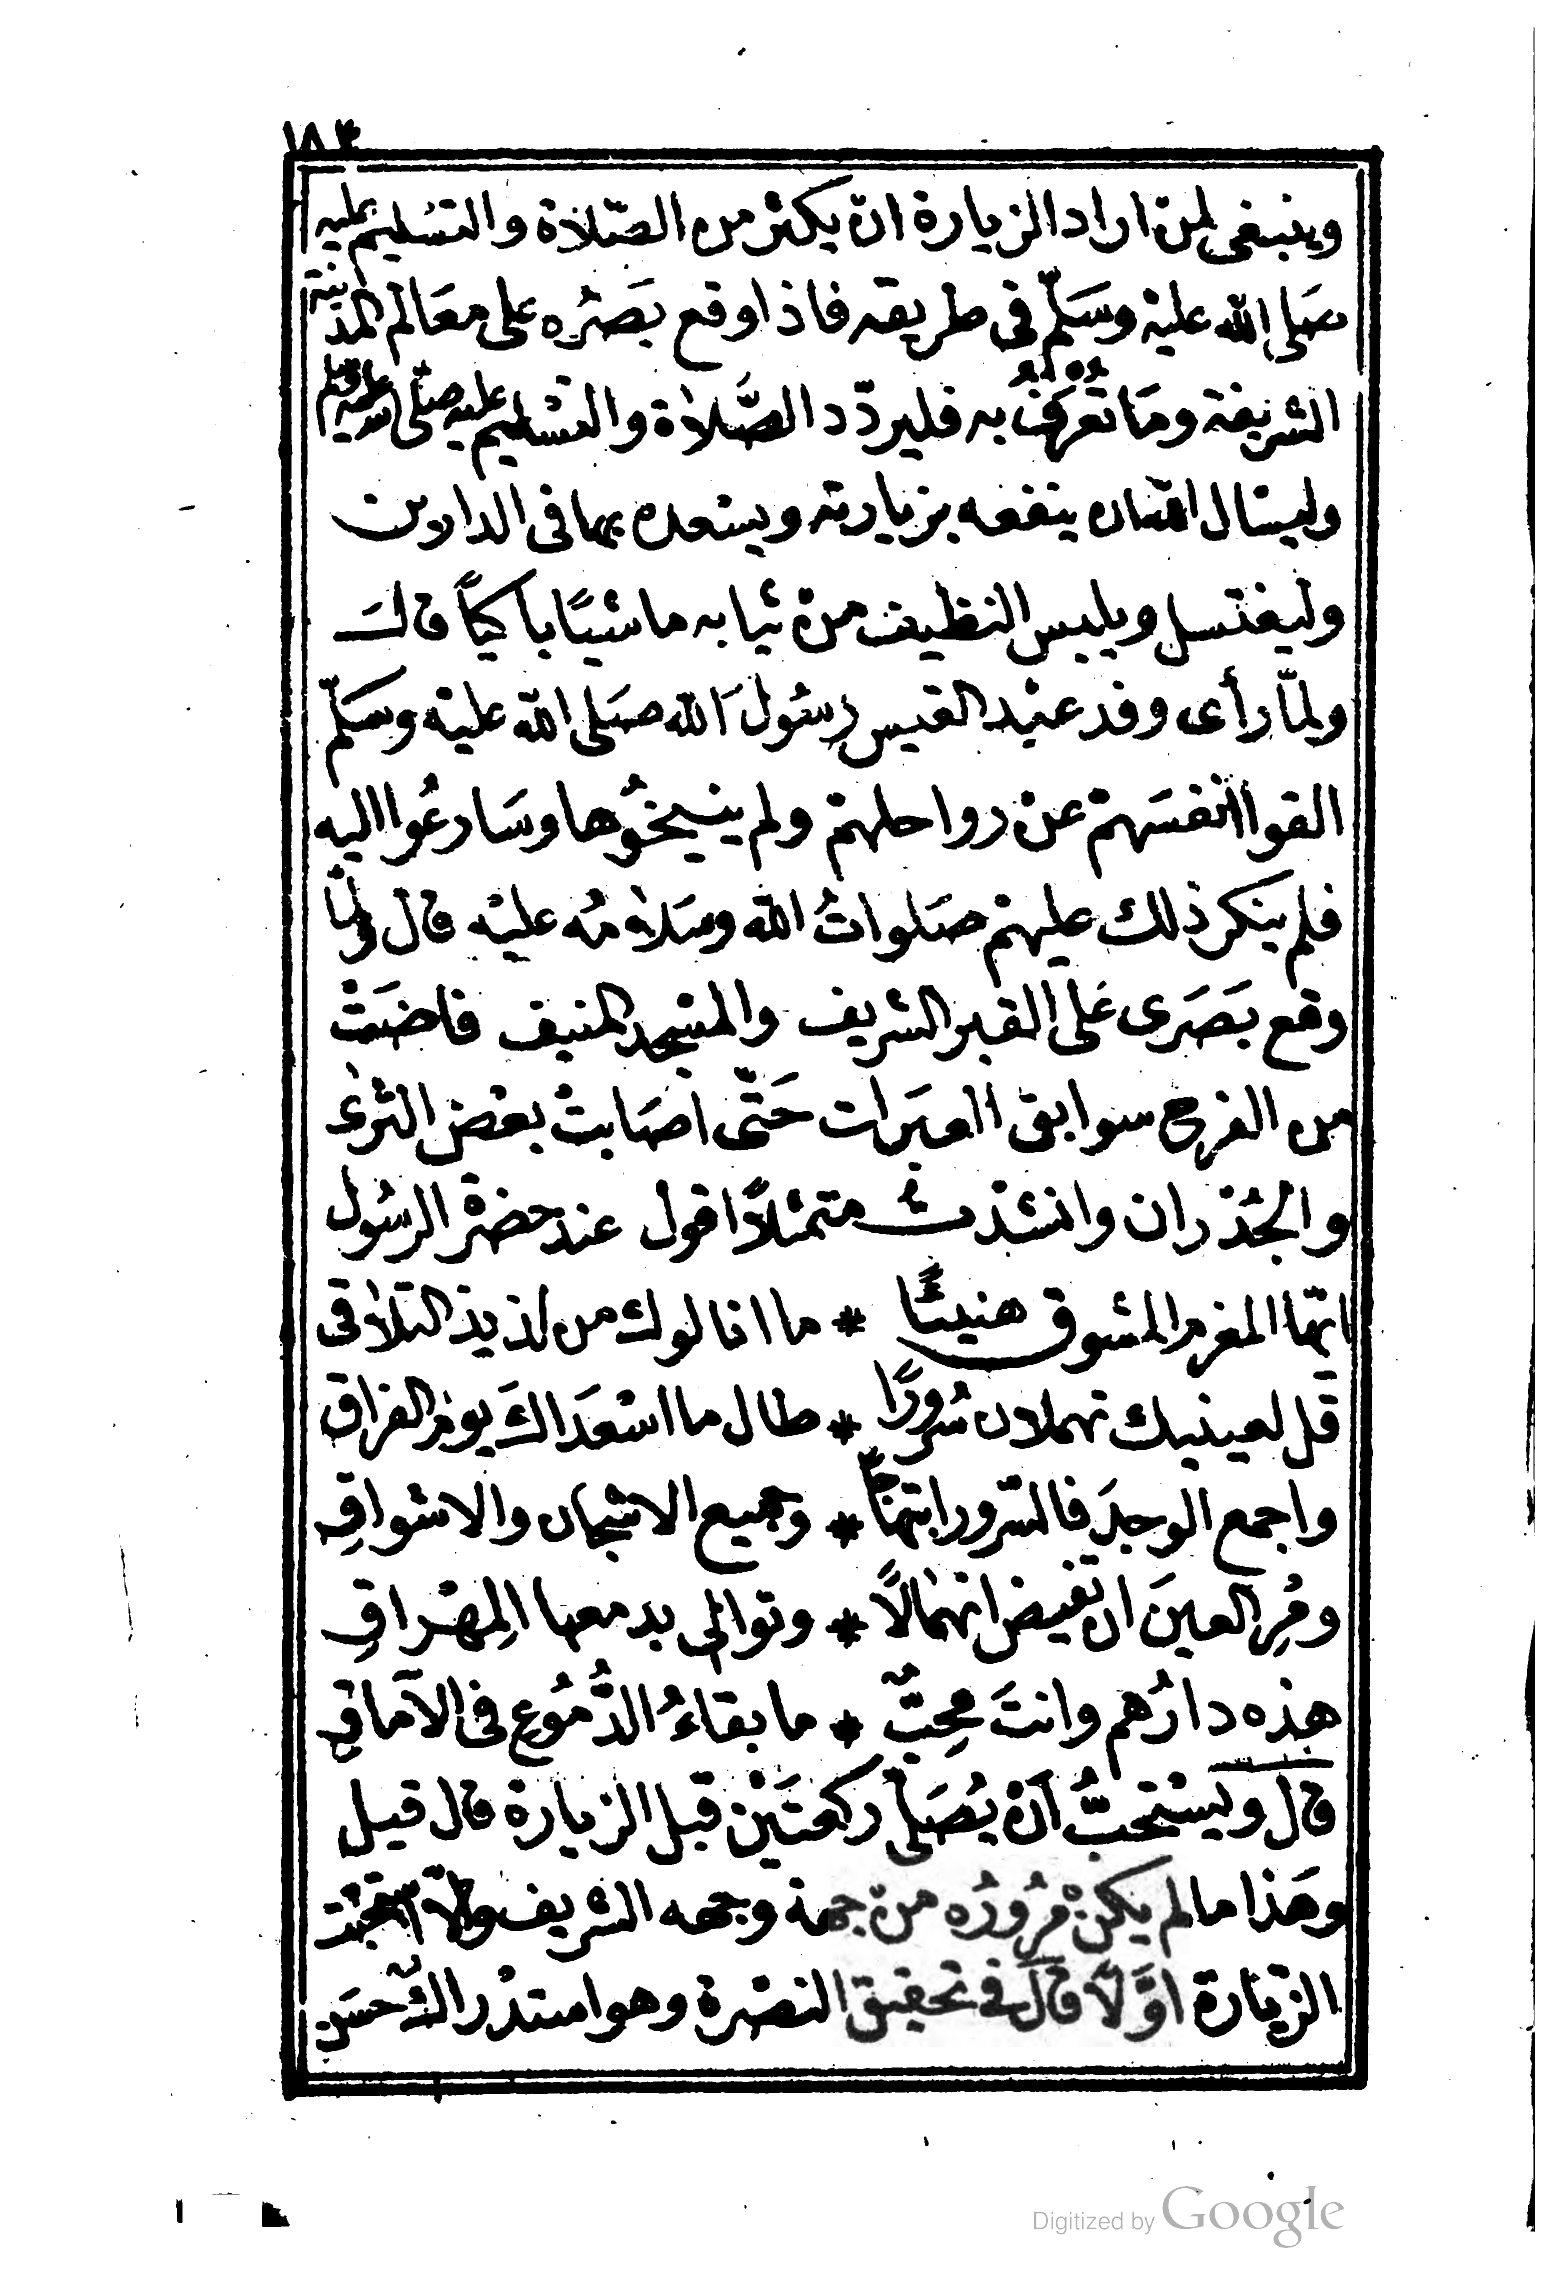 ١٨٤
وينبغى لمن اراد الزيارة ان يكثر من الصّلاة والتسليم عليه
صلى الله عليه وسلّم فى طريقه فاذا وقع بصره على معالم المدينة
الشريفة ومَا تُعْرَفُ به فليردّد الصَّلاة والتسليم عليه صلى الله عليه وسلم
وليسال الله ان ينفعه بزيارته ويسعده بها فى الدارين
وليغتسل ويلبس النظيف من ثيابه ماشيًا باكيًا قال
ولمّا رأى وفد عبْد القيس رسُولَ الله صلى الله عليه وسَلّم
القوا انفسَهم عن رواحلهم ولم ينيخُوها وسَارعُوا اليه
فلم ينكر ذلك عليهم صَلواتُ الله وسَلامُه عليْه قال ولمّا
وقع بَصَرى عَلى القبر الشريف والمسْجد المنيف فاضَتْ
من الفرح سوابق العبَرات حَتّى اصَابتْ بعْض الثرى
والجُدْران وانشدْت متمثلاً اقول عند حضرة الرسُول
ايّها المغرم المشوق هنيئًا * ما انالوك من لذيذ التلاقى
قل لعينيك تهملان سُرورًا * طال ما اسْعَداكَ يوم الفراق
واجمع الوجدَ فالسّرور ابتهاجًا * وجميع الاشجان والاشواقِ
ومُرِ العينَ ان تفيض انهمالًا * وتوالى بدمعها المِهْراقِ
هذه دارُهم وانتَ محِبٌّ * ما بقاءُ الدُّمُوعِ فى الآماقِ
قال ويسْتحبُّ أنْ يُصَلى ركعتَيْن قبل الزيارة قال قيل
وهَذا ما لم يكنْ مُرورُه من جهة وجهه الشريف والّا استحبّت
الزيارة اوّلًا قال فى تحقيق النصْرة وهو استدْراكٌ حسَن
Digitized by Google